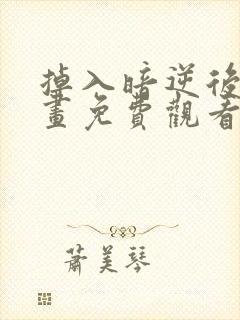 掉入暗逆後
畫免費觀看
蕭美琴